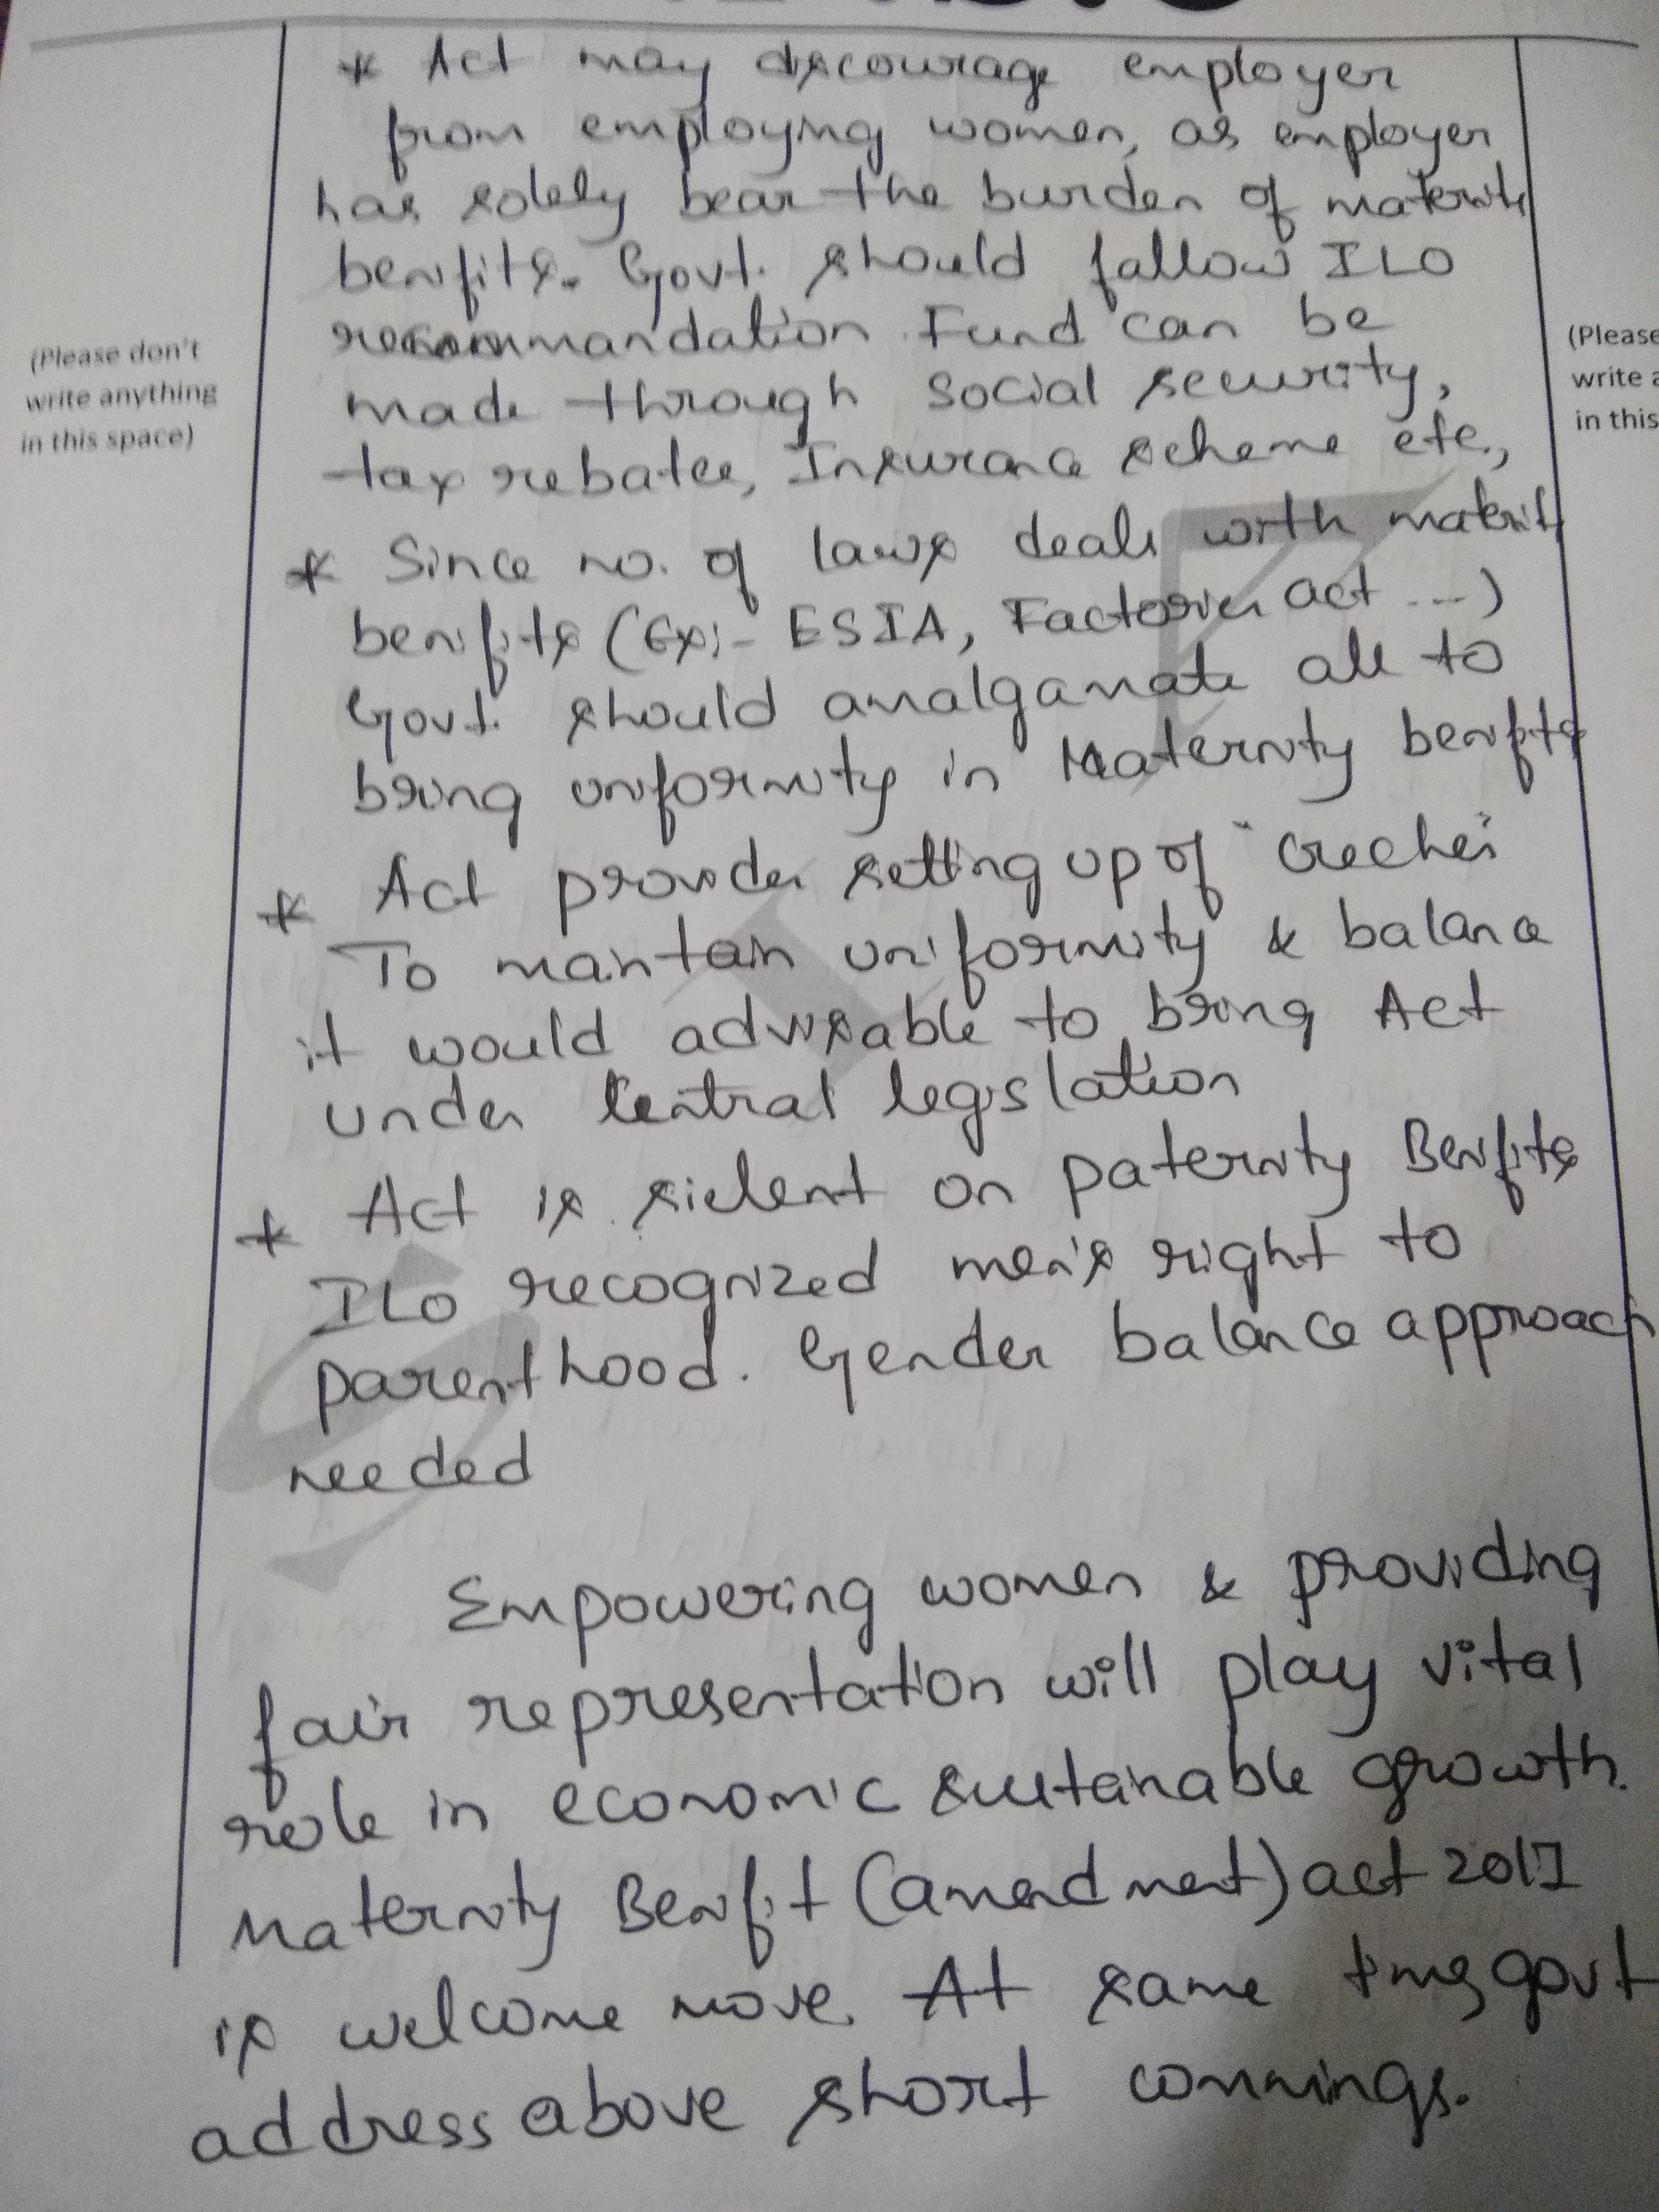 * Act may discourage employer
from employing women, as employer
has solely bear the burden of maternity
benifits. Govt. should fallow ILO
recommandation. Fund can be
made through social security,
tax rebates, Insurance scheme etc.,
* Since no. of laws deals with maternity
benifits (Ex:- ESIA, Factories act ...)
Govt. should amalgamate all to
bring uniformity in Maternity benifits
* Act provides setting up of "creches"
To maintain uniformity & balance
it would advisable to bring Act
under Central legislation
* Act is sielent on paternity Benifits
ILO recognized men's right to
parenthood. Gender balance approach
needed
Empowering women & providing
fair representation will play vital
role in economic sustainable growth.
Maternity Benifit (amendment) act 2017
is welcome move. At same time, govt
address above short commings.
(Please don't
write anything
in this space)
(Please
write a
in this